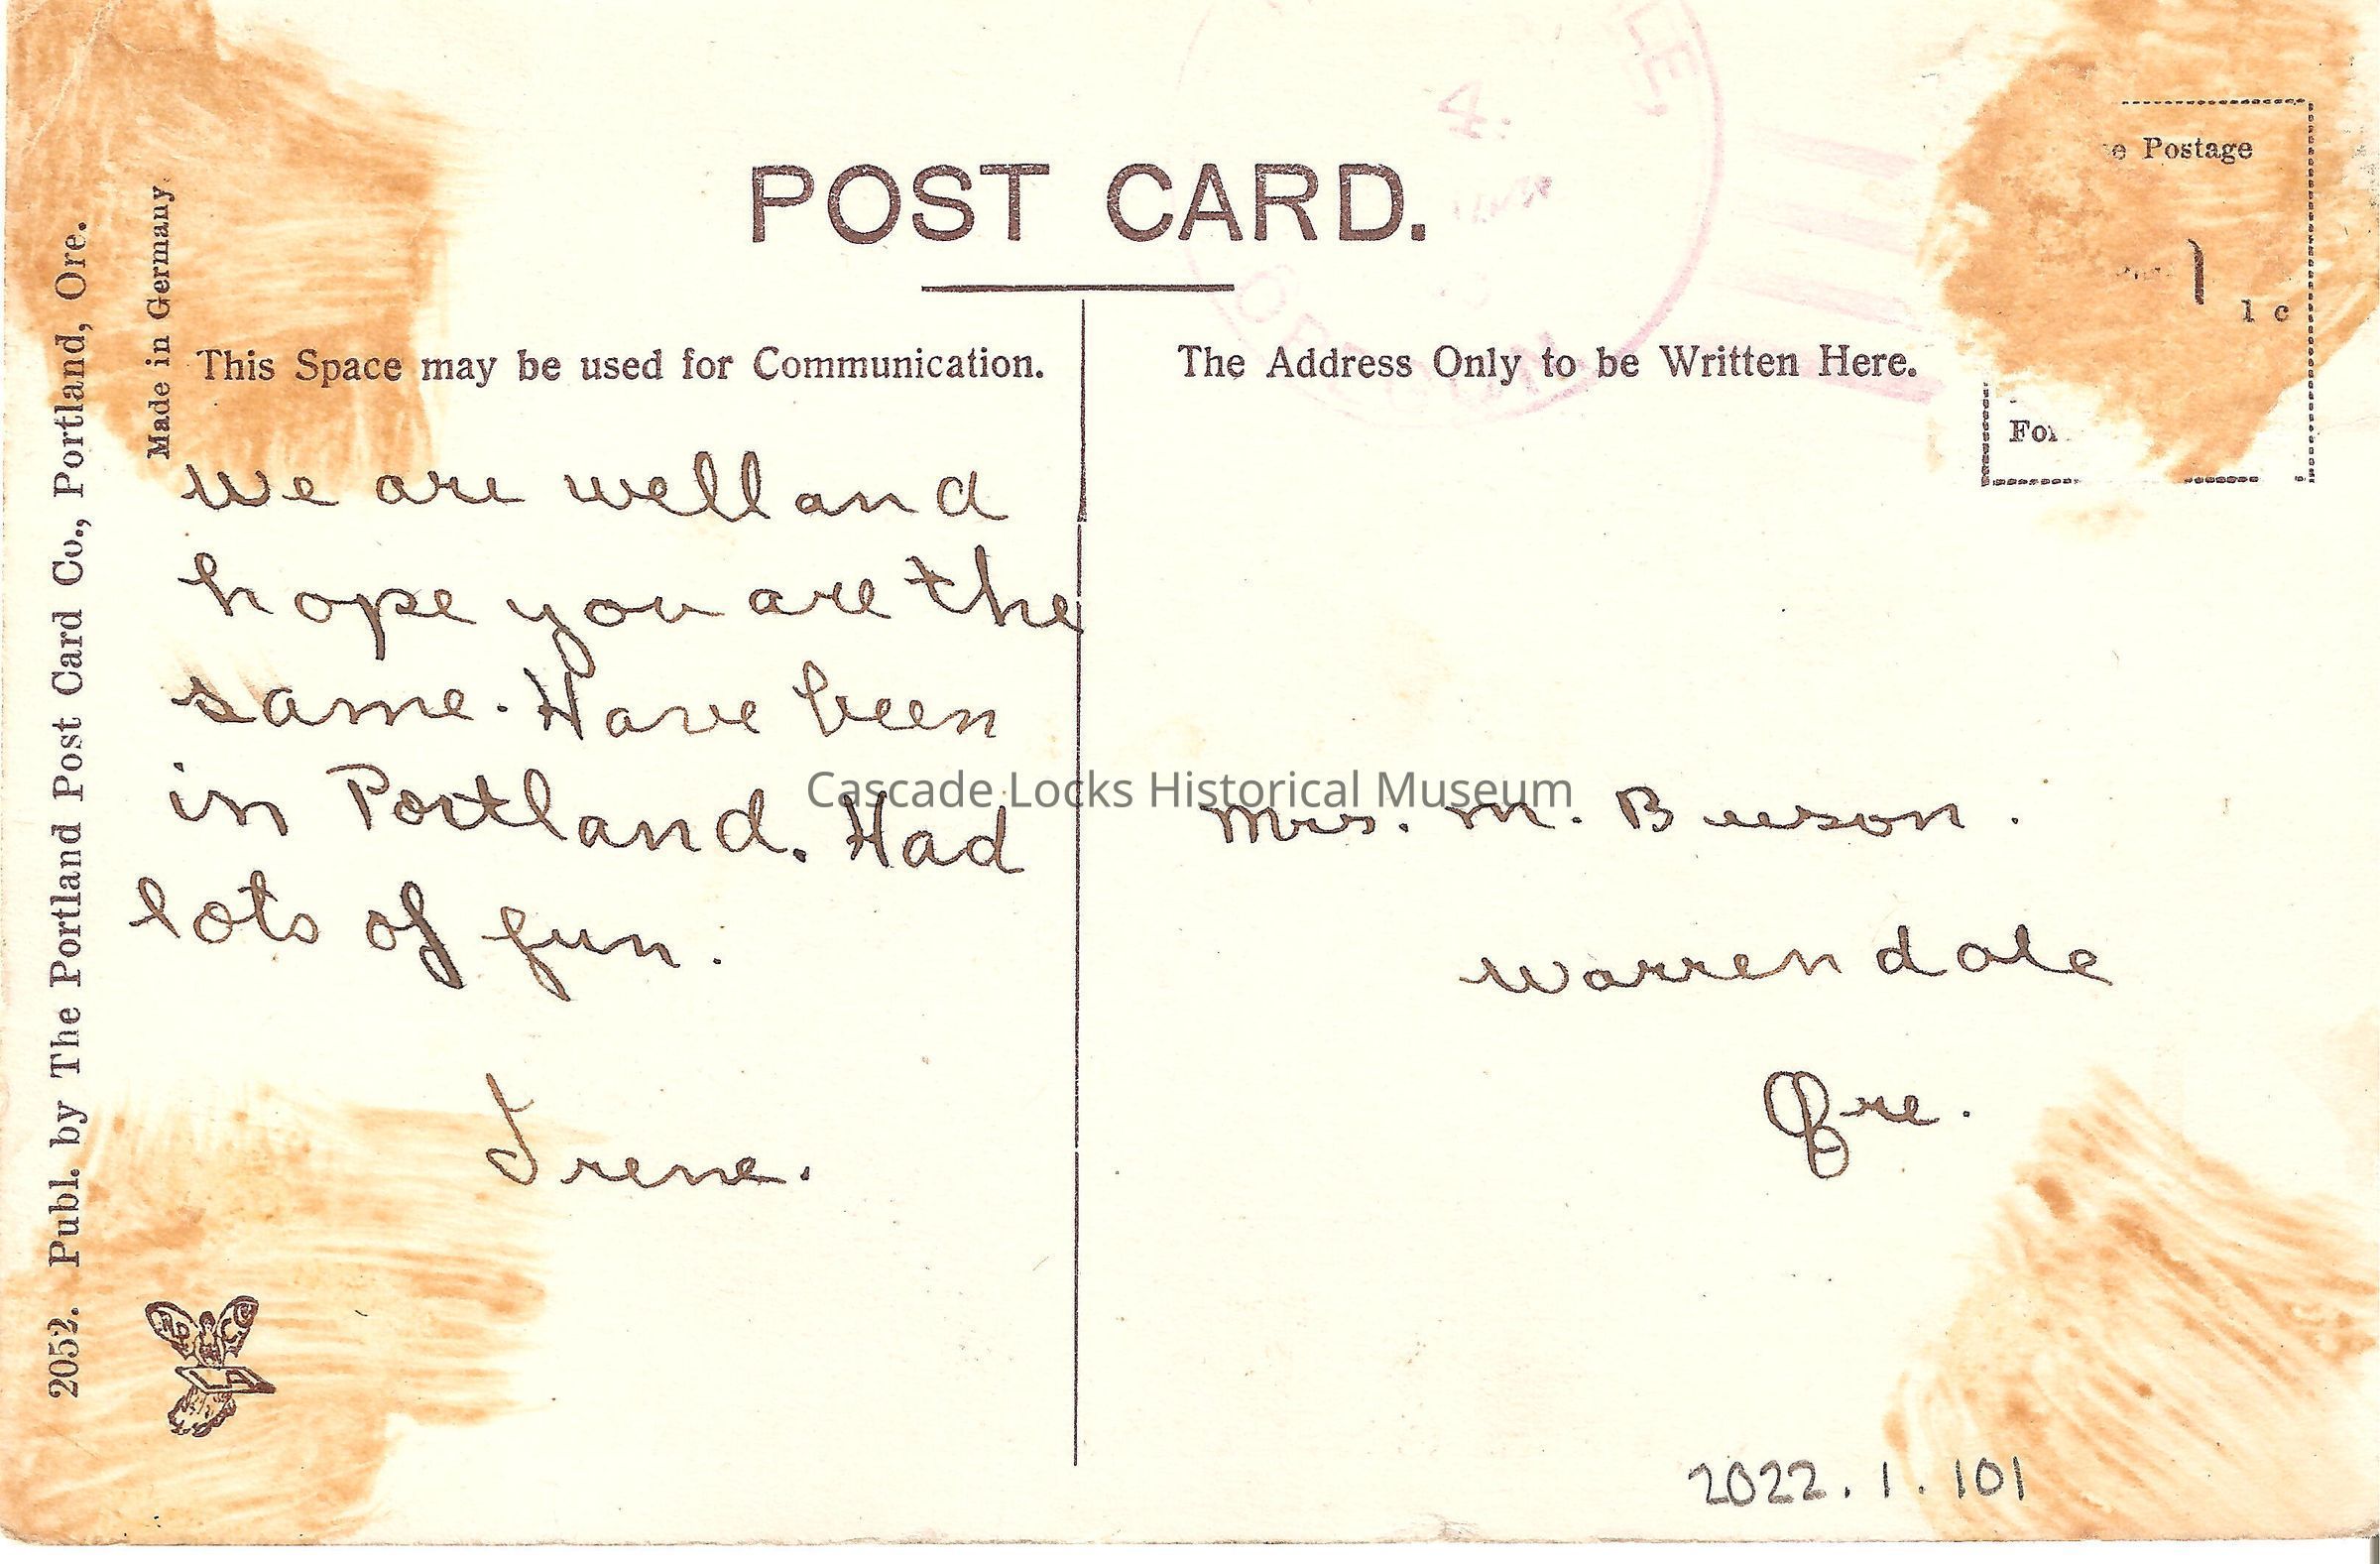 POST CARD.
This Space may be used for Communication.
The Address Only to be Written Here.
e Postage
1 c
For
2052. Publ. by The Portland Post Card Co., Portland, Ore.
Made in Germany
We are well and
hope you are the
same. Have been
in Portland. Had
lots of fun.
Irene.
Mrs. M.
Warrendale
Ore.
Cascade Locks Historical Museum
2022.1.101